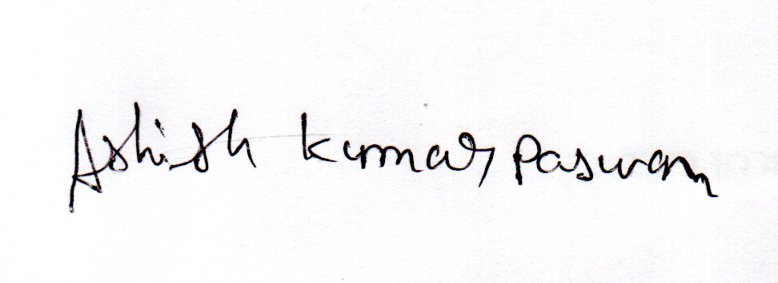 Ashish Kumar Paswan